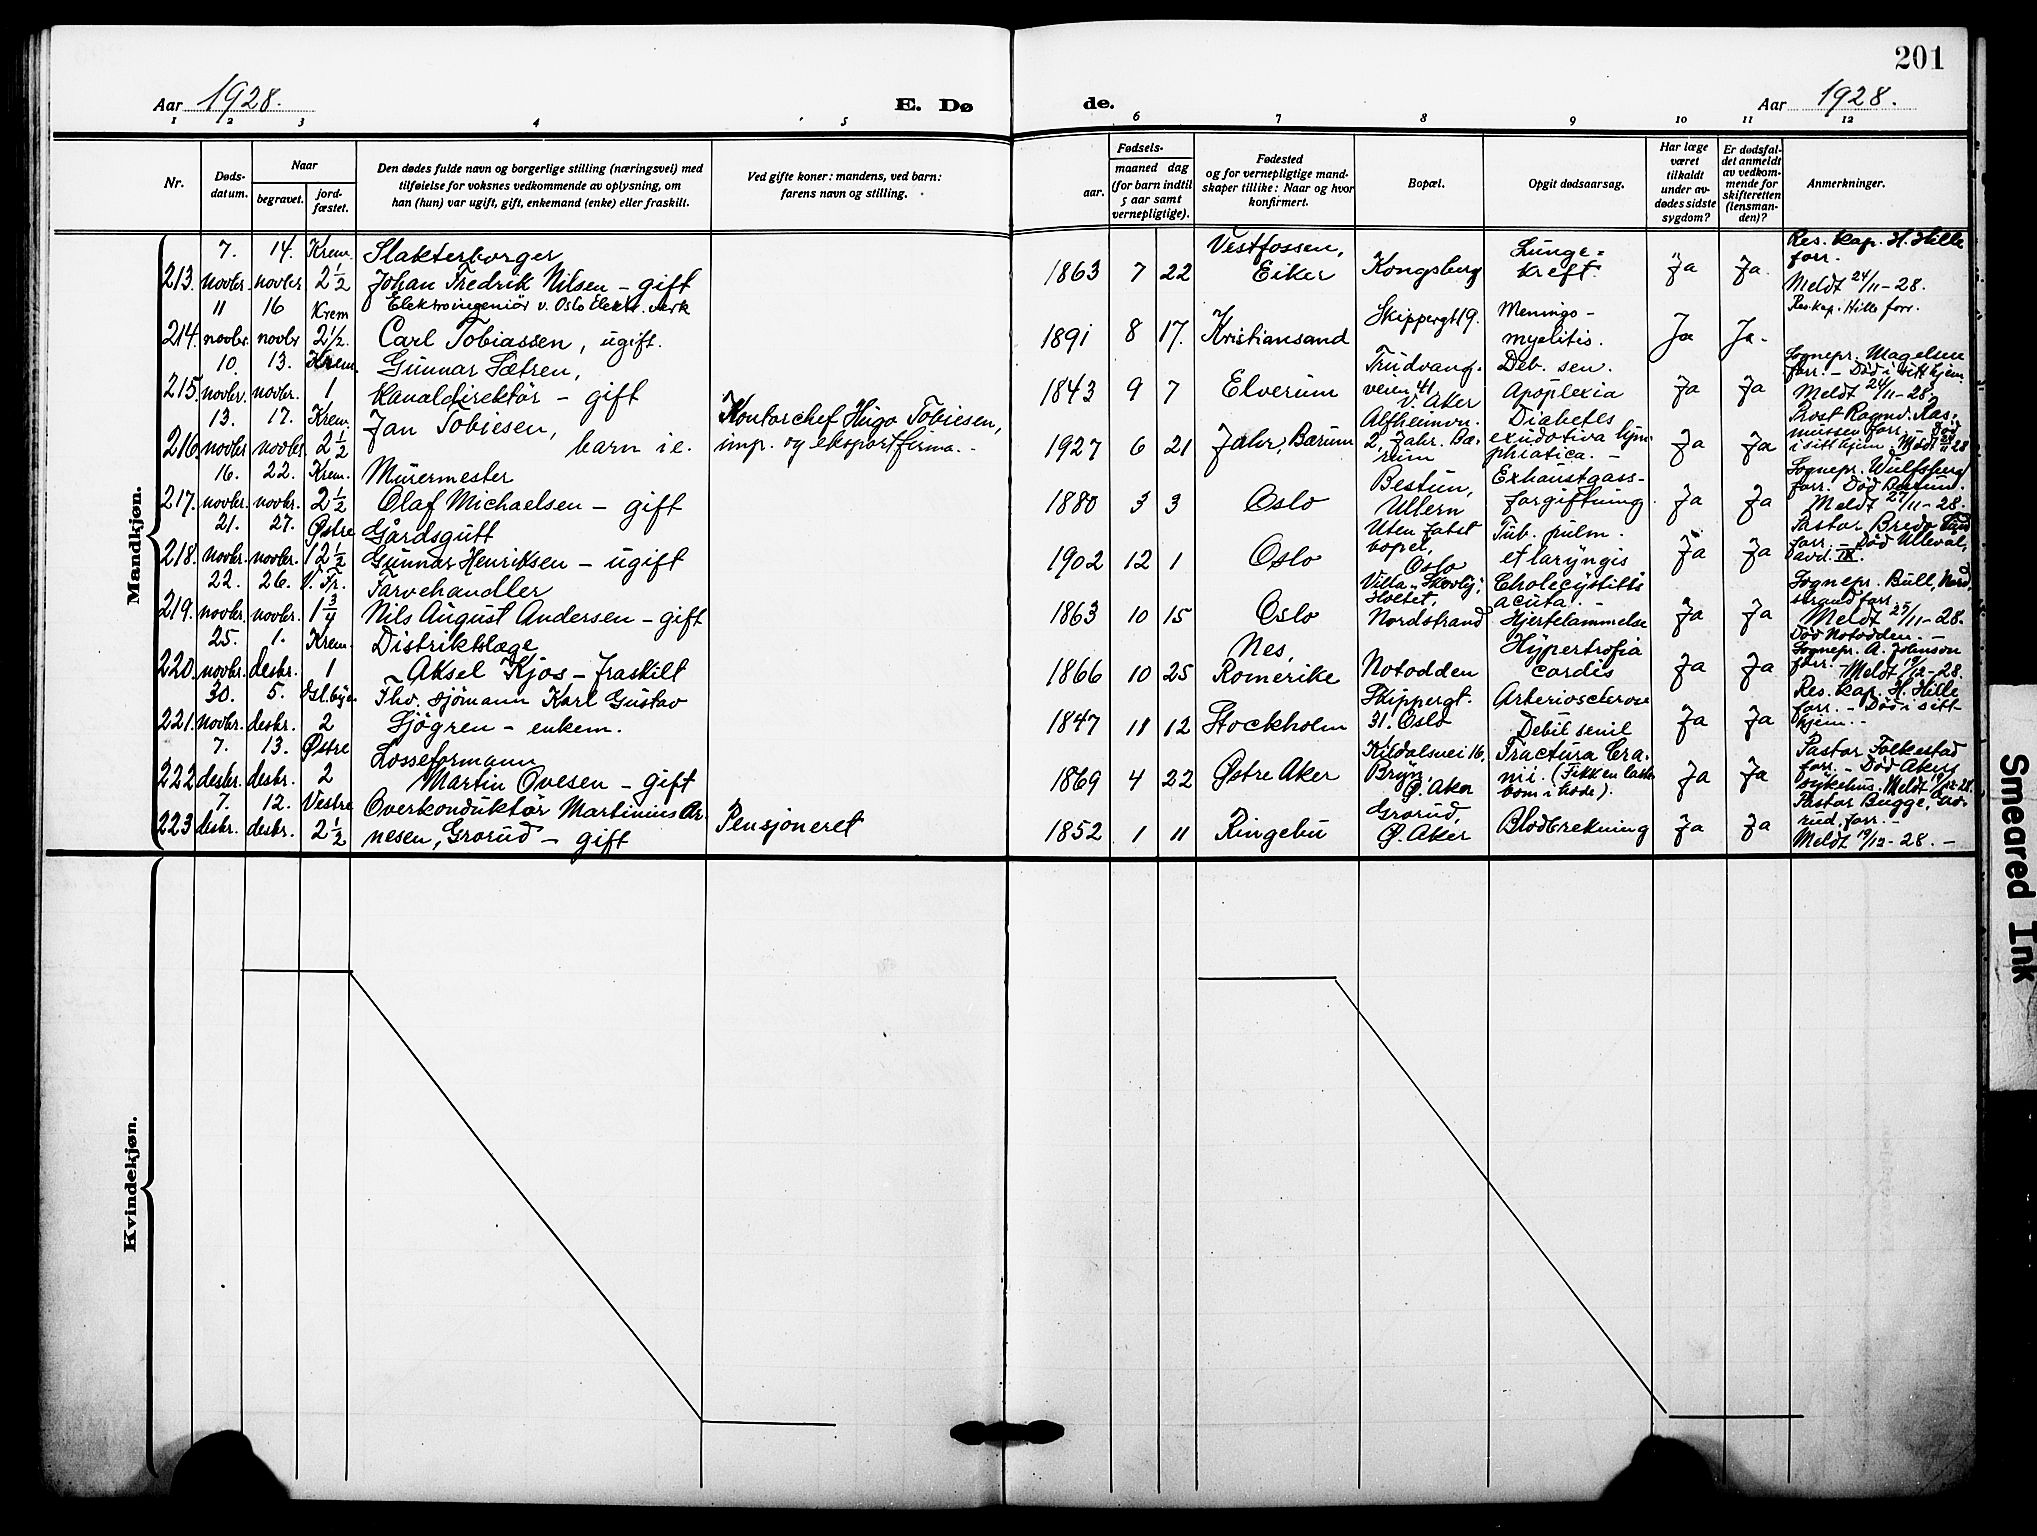 201
Aar 1928.
E. Dø
de.
Aar 1928.
1 2 3 4 5 6 7 8 9 10 11 12
Nr.
Døds-
datum.
Naar
begravet.
jord-
fæstet.
Den dødes fulde navn og borgerlige stilling (næringsvei) med
tilføielse for voksnes vedkommende av oplysning, om
han (hun) var ugift, gift, enkemand (enke) eller fraskilt.
Ved gifte koner: mandens, ved barn:
farens navn og stilling.
Fødsels-
aar.
maaned dag
(for barn indtil
5 aar samt
vernepligtige).
Fødested
og for vernepligtige mand-
skaper tillike: Naar og hvor
konfirmert.
Bopæl.
Opgit dødsaarsag.
Har læge
været
tilkaldt
under av-
dødes sidste
sygdom?
Er dødsfal-
det anmeldt
av vedkom-
mende for
skifteretten
(lensman-
den)?
Anmerkninger.
Mandkjøn.
7. 14. Krem. Slakterborger Vestfossen, Lunge= Res. kap. H. Hille
213. novbr. novbr. 2½ Johan Fredrik Nilsen - gift 1863 7 22 Eiker Kongsberg kreft. Ja Ja. forr.
Meldt 24/11-28.
11 16 Krem Elektroingeniør v. Oslo Elektr. verk Skippergt 19. Meningo- Res. kap. Hille forr.
214. novbr. novbr 2½. Carl Tobiassen, ugift. 1891 8 17. Kristiansand myelitis. Ja Ja.
10. 13. Krem. Gunnar Sætren, Trudvang- Deb. sen. Sognepr. Magelsen
forr. - Død i sitt hjem.
215. novbr. novbr. 1 Kanaldirektør - gift 1843 9 7 Elverum veien 41 V. Aker Apoplexia Ja Ja Meldt 24/11-28.
13. 17. Krem. Jan Tobiesen, Kontorchef Hugo Tobiesen, Alfheimvn. Diabetes
216. novbr novbr. 2½ barn i e. imp. og eksportfirma. - 1927 6 21 Jahr, Bærum 2, Jahr. Bæ- exudotiva lym- Ja Ja
rum phiatica. -
i sitt hjem. Meldt
16. 22. Krem. Murermester Bestun, Exhaustgass- Sognepr. Wulfsberg
forr. Død Bestum.
217. novbr. novbr. 2½ Olaf Michaelsen - gift 1880 3 3 Oslo Ullern forgiftning. Ja Ja Meldt 27/11-28.
21. 27. Østre Gårdsgutt Uten fabst Tub. pulm. Pastor Bredo
218. novbr. novbr. 12½ Gunnar Henriksen - ugift 1902 12 1 Oslo bopel, Oslo et laryngis Ja Ja forr. - Død Ullevål,
avd. IX.
22. 26. V. Fr. Farvehandler Villa Skovly, Cholecystitis Sognepr. Bull, Nord-
219. novbr. novbr. 1¾ Nils August Andersen - gift 1863 10 15 Oslo Holtet, Nordstrand acuta. - Hjertelammelse Ja Ja strand forr.
Meldt 25/11-28.
25. 1. Krem. Distriktslæge Nes, Hypertrofia Død Notodden. -
Sognepr. A. Johnson
220. novbr. desbr. 1 Aksel Kjos - fraskilt 1866 10 25 Romerike Notodden cordis Ja Ja forr. - Meldt 19/12-28.
30. 5. Fhv. sjømann Karl Gustav Skippergt. Arteriosclerose Res. kap. H. Hille
221. novbr. desbr. 2 Sjögren - enkem. 1847 11 12 Stockholm 31. Oslo Debil senil Ja Ja forr. - Død i sitt
hjem. -
7. 13. Østre Losseformann 16, Fractura Cra- Pastor Folkestad
222 desbr. desbr. 2 Martin Ovesen - gift 1869 4 22 Østre Aker Bryn, Ø. Aker nii. (Fikk en laste- Ja Ja forr. - Død Akers
bom i hode). sykehus. Meldt 19/12-28.
7. 12. Vestre Overkonduktør Martinius Ar- Grorud, Pastor Bugge, Gro-
223 desbr. desbr. 2½ nesen, Grorud - gift Pensjoneret 1852 1 11 Ringebu Ø. Aker Blodbrekning Ja Ja rud, forr. -
Meldt 19/12-28. -
Kvindekjøn.
Smeared Ink